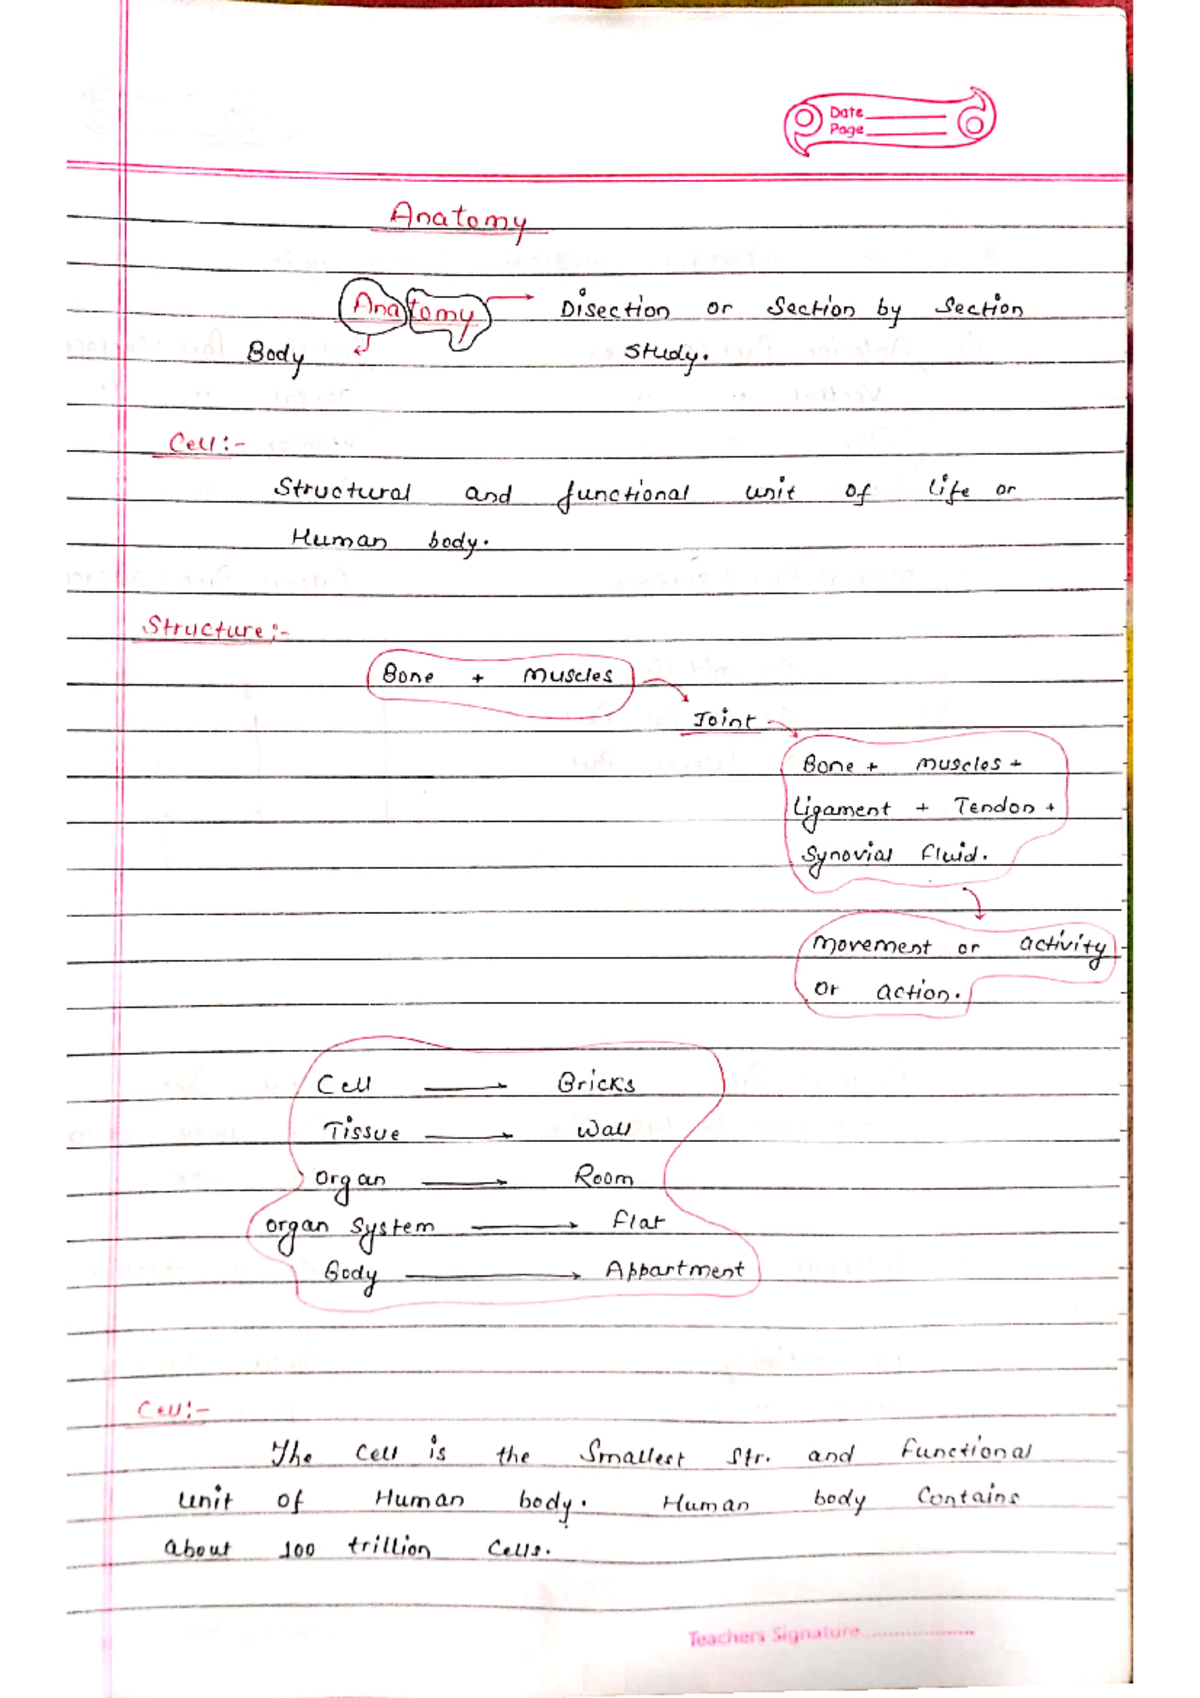 Date
Page
Anatomy
Anatomy → Disection or Section by Section
Body Study.
Cell:-
Structural and functional unit of life or
Human body.
Structure:-
Bone + Muscles
Joint
Bone + Muscles +
Ligament + Tendon +
Synovial Fluid.
Movement or activity
or action.
Cell → Bricks
Tissue → Wall
Organ → Room
Organ System → Flat
Body → Appartment
Cell:-
The Cell is the Smallest Str. and Functional
unit of Human body. Human body Contains
about 100 trillion Cells.
Teachers Signature